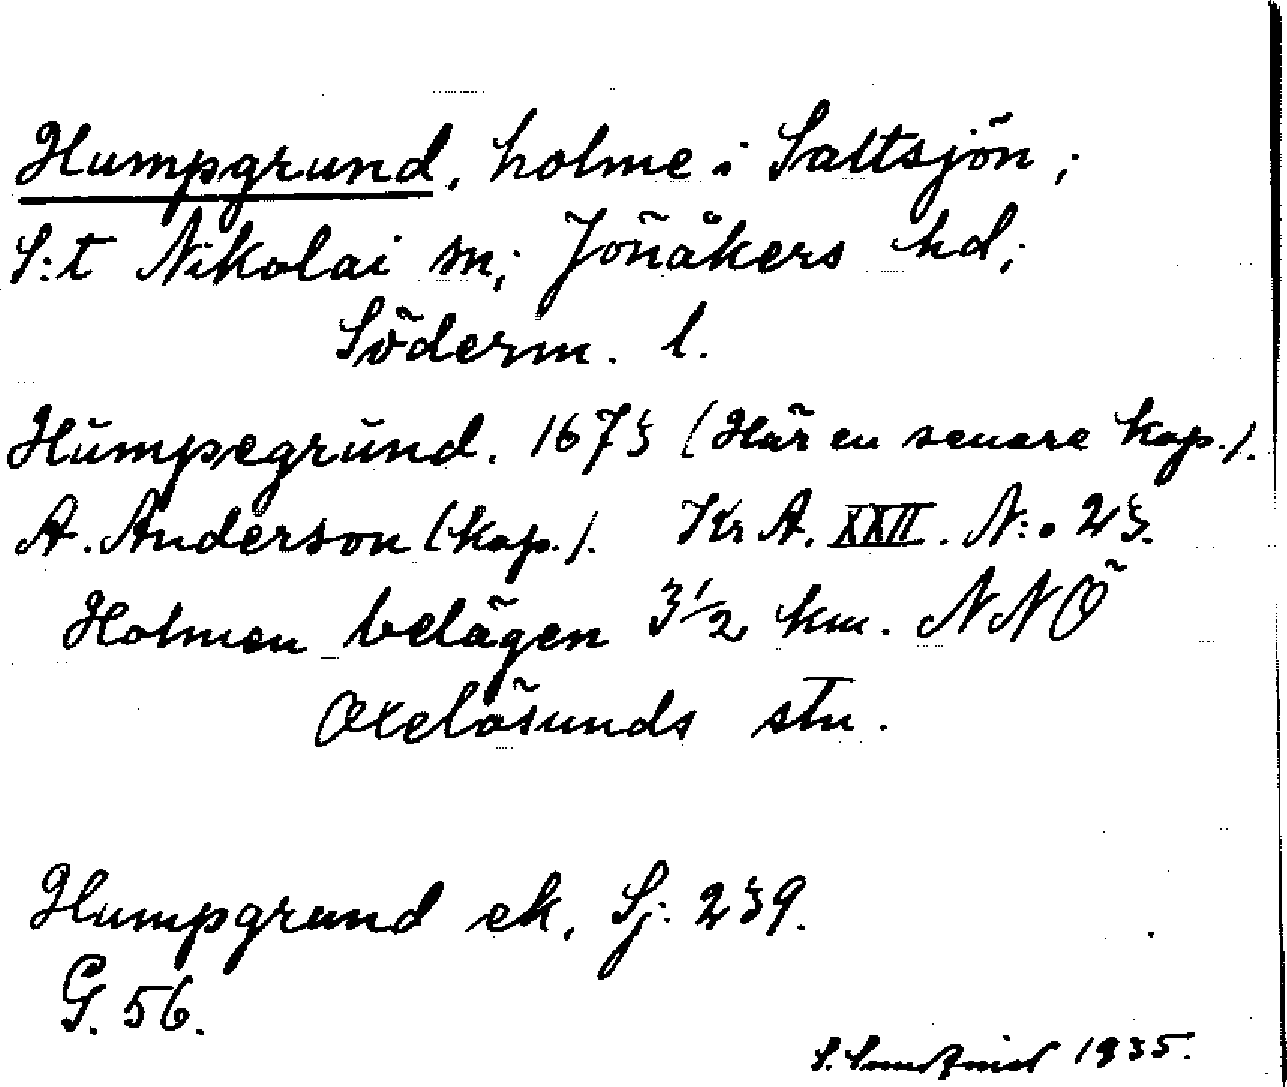 Humpgrund, holme i Saltsjön;
S:t Nikolai sn; Jönåkers hd;
Söderm. l.
Humpegrund. 1673 (Här en senare kop.).
A. Anderson (kop.). Kr A. XXII. N:o 23.
Holmen belägen 3½ km. NNÖ
Oxelösunds stn.
Humpgrund ek. Sj. 239.
G. 56.
S. 1935.